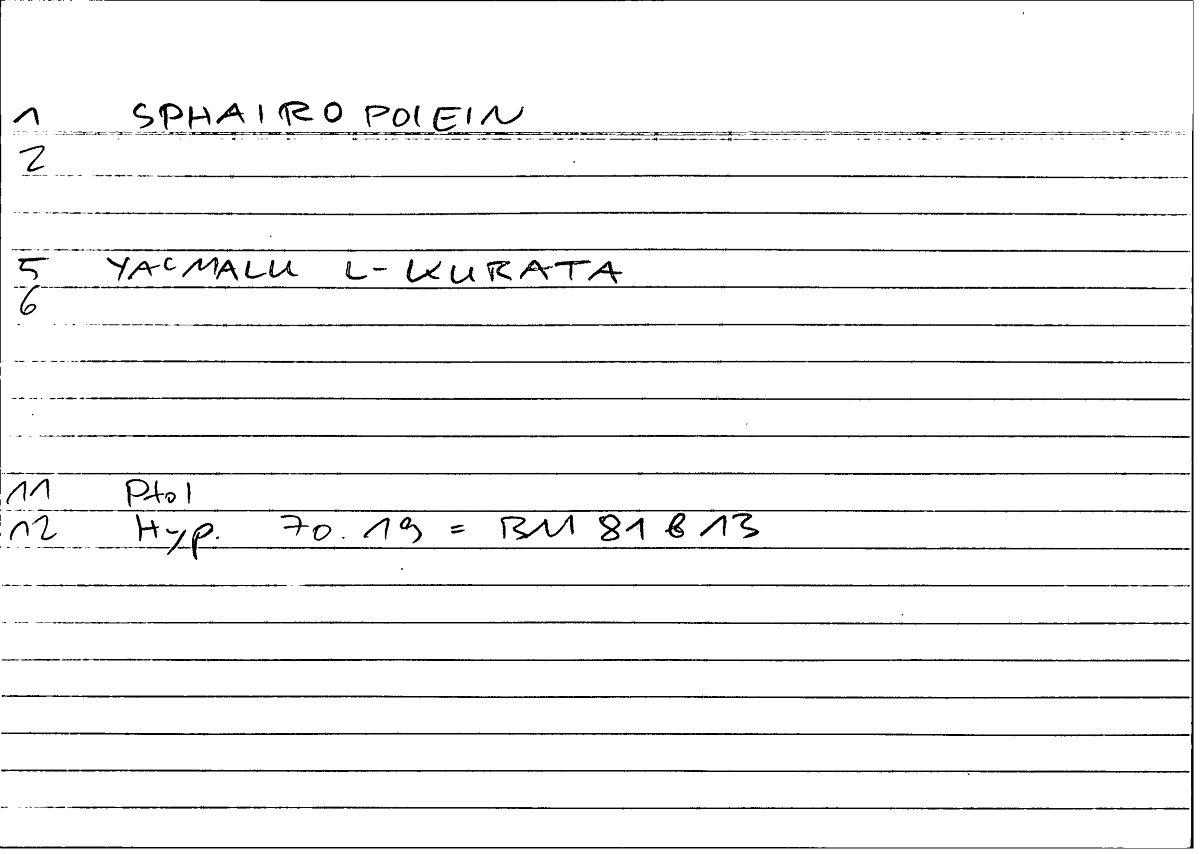 1 SPHAIRO POIEIN
2
5 YAcMALU L-KURATA
6
11 Ptol
12 Hyp. 70.19 = BM 81 b 13